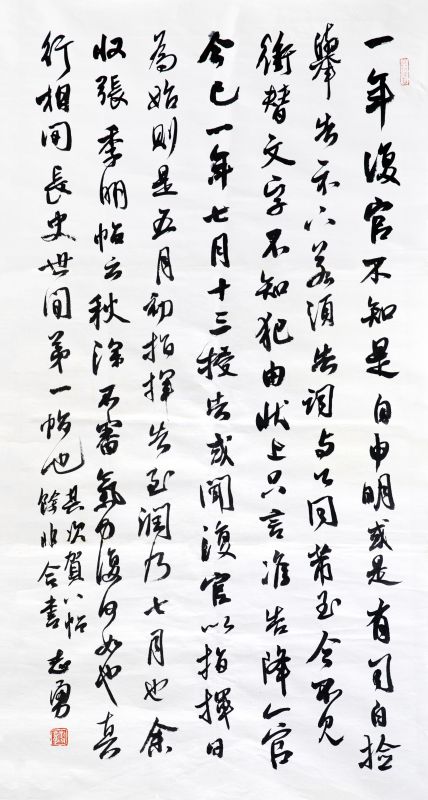 一年復官不知是自申明或是有司自撿
舉告示下若須告詞与公同帶玉今不見
銜替文字不知犯由狀上只言准告降一官
今已一年七月十三授告或聞復官以指揮日
為始則是五月初指揮告至潤乃七月也余
收張季明帖云秋深不審氣力復何如也真
行相間長史世間第一帖也其次賀八帖
餘非合書 志勇